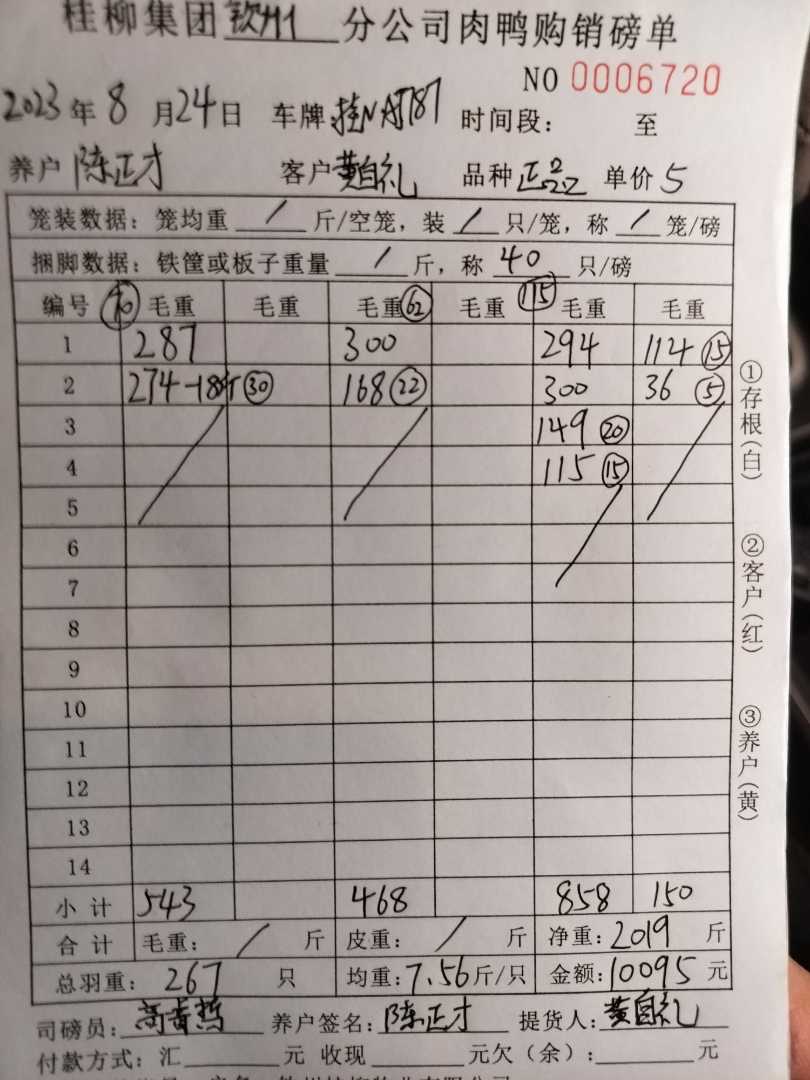 桂柳集团钦州1分公司肉鸭购销磅单
NO 0006720
2023年8月24日 车牌:桂NAJ787 时间段: 至
养户 陈正才 客户 黄自礼 品种 单价 5
笼装数据: 笼均重 / 斤/空笼, 装 / 只/笼, 称 / 笼/磅
捆脚数据: 铁筐或板子重量 / 斤, 称 40 只/磅
编号 70 毛重 毛重 毛重 62 毛重 115 毛重 毛重
1 287 300 294 114 15
2 274-18斤 30 168 22 300 36 5
3 149 20
4 115 15
5
6
7
8
9
10
11
12
13
14
小计 543 468 858 150
合计 毛重: / 斤 皮重: / 斤 净重: 2019 斤
总羽重: 267 只 均重: 7.56斤/只 金额: 10095 元
司磅员: 养户签名: 陈正才 提货人: 黄自礼
付款方式: 汇 元 收现 元欠(余): 元
①存根(白)
②客户(红)
③养户(黄)